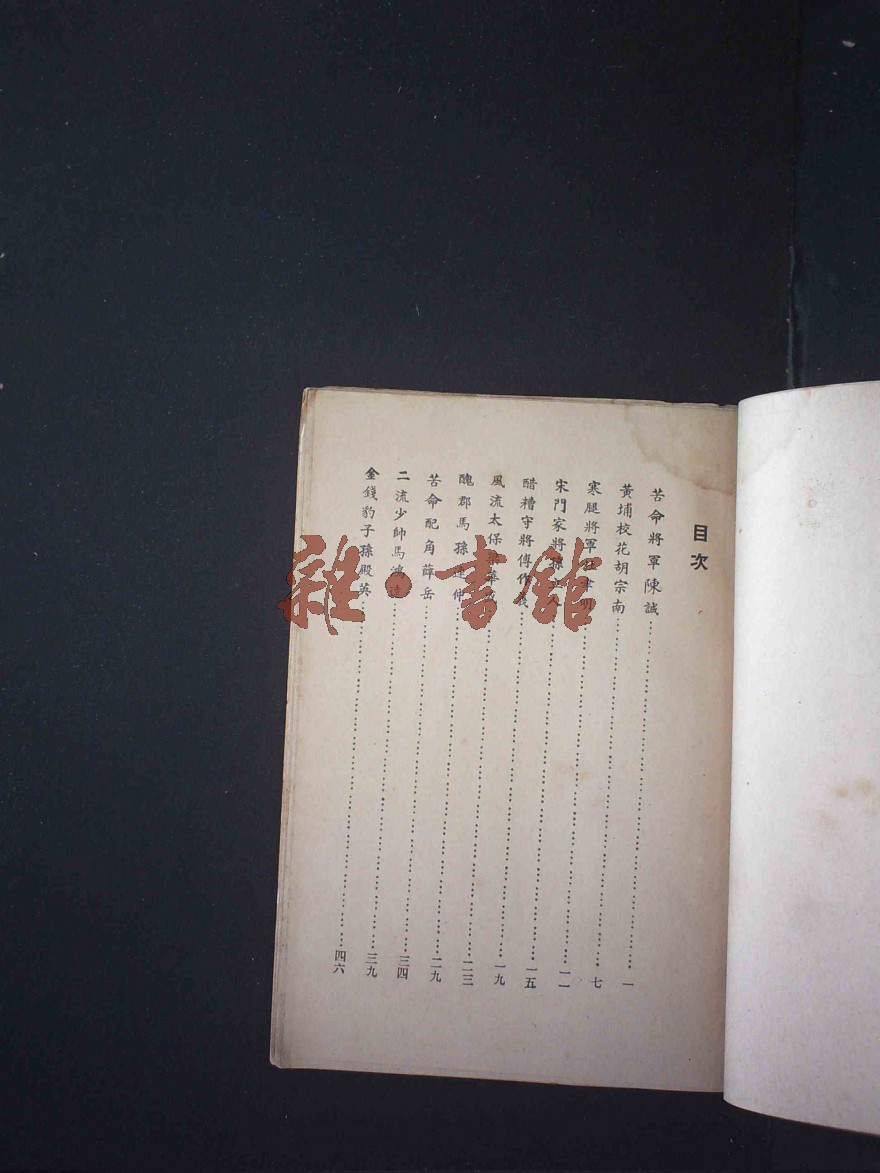 目次
苦命將軍陳誠……一
黃埔校花胡宗南……七
寒腿將軍杜聿明……一一
宋門家將孫立人……一五
醋糟守將傅作義……一九
風流太保梁華盛……二三
醜郡馬孫連仲……二九
苦命配角薛岳……三四
二流少帥馬鴻逵……三九
金錢豹子孫殿英……四六
雜·書館